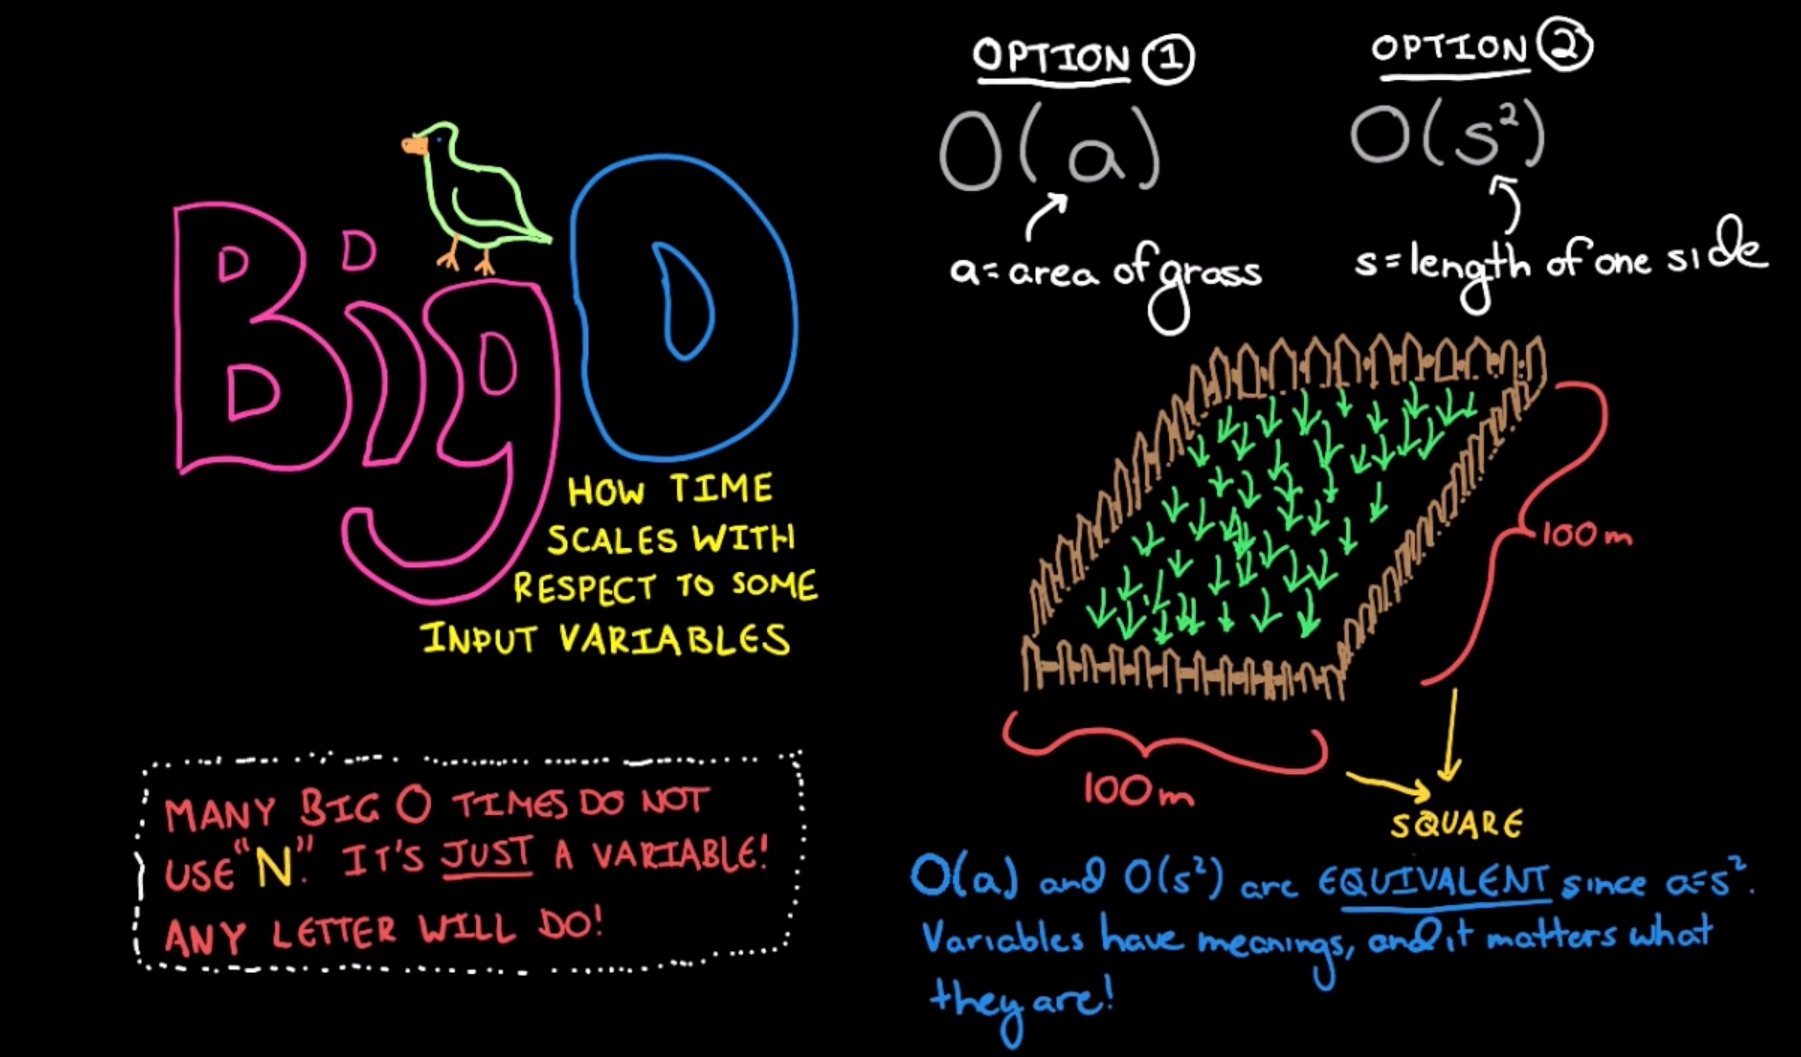 Big O
HOW TIME
SCALES WITH
RESPECT TO SOME
INPUT VARIABLES
MANY BIG O TIMES DO NOT
USE "N". IT'S JUST A VARIABLE!
ANY LETTER WILL DO!
OPTION 1
O(a)
a = area of grass
OPTION 2
O(s²)
s = length of one side
100m
100m
SQUARE
O(a) and O(s²) are EQUIVALENT since a=s².
Variables have meanings, and it matters what
they are!